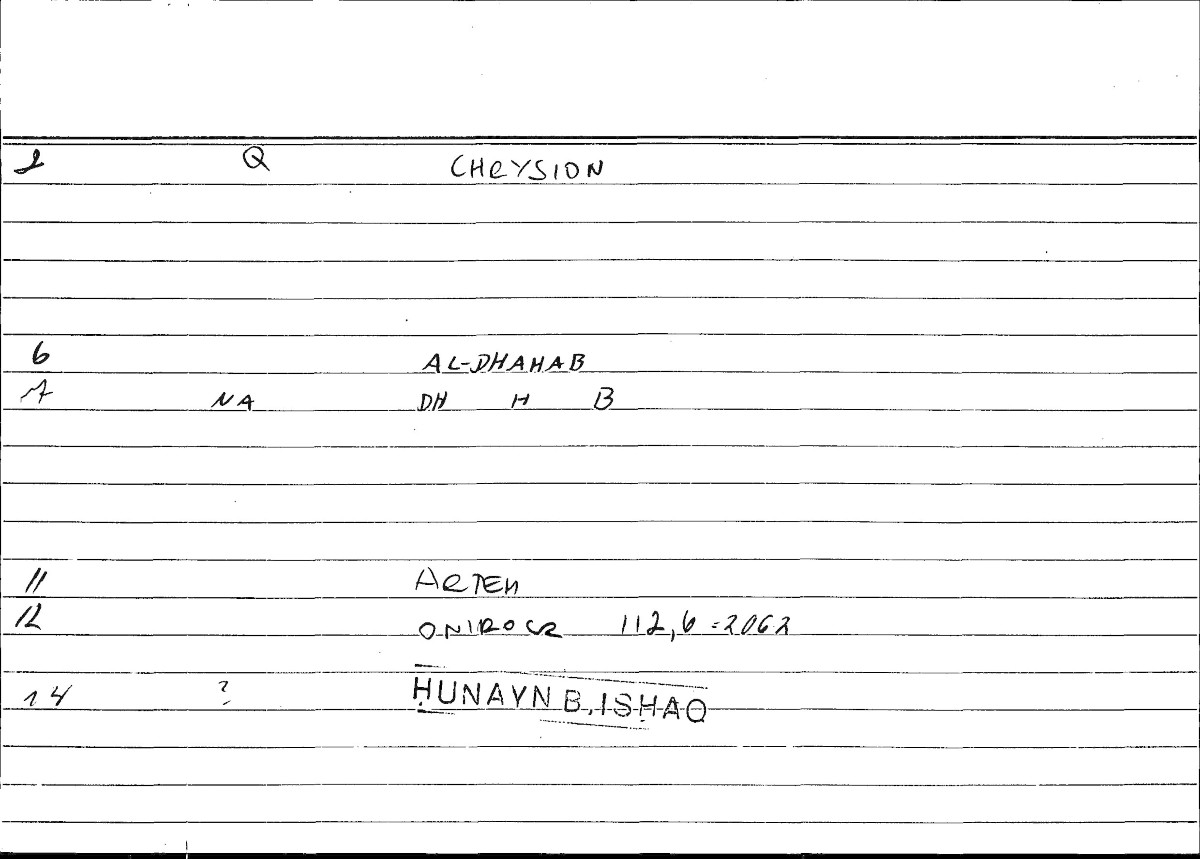 2 Q CHRYSION
6 AL-DHAHAB
7 NA DH H B
11 ARTEM
12 ONIROCR 112,6 = 206 2
14 ? ḤUNAYN B. ISḤAQ